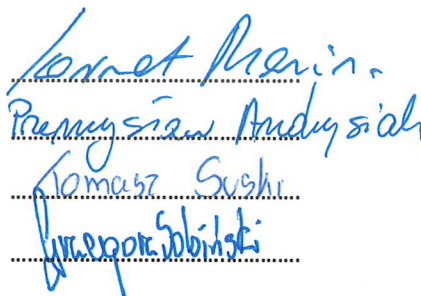 Przemysław Andrysiak
Tomasz Suski
Grzegorz Sobiński